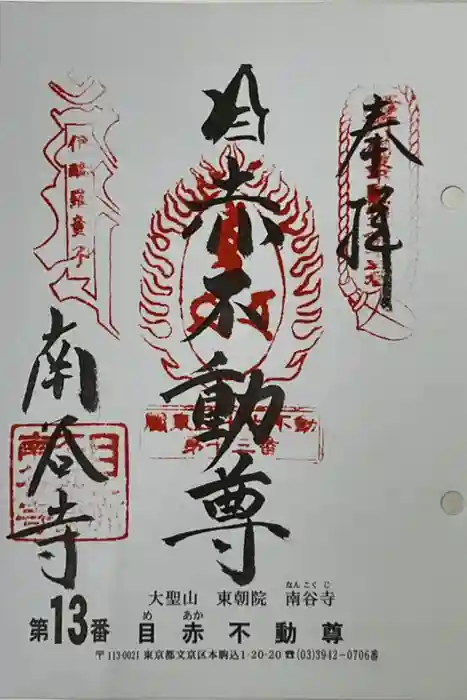 奉拝
目赤不動尊
伊醯羅童子
南谷寺
關東
不動
第十三番
大聖山 東朝院 南谷寺
なんこくじ
第13番 目赤不動尊
め あか
〒113-0021 東京都文京区本駒込1-20-20 ☎(03)3942-0706番